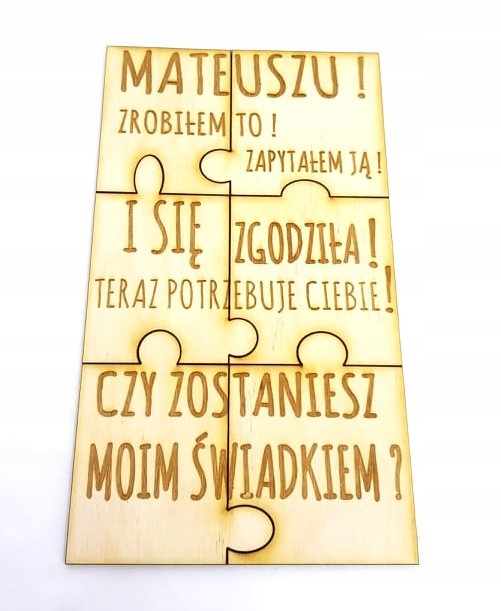 MATEUSZU !
ZROBIŁEM TO !
ZAPYTAŁEM JĄ !
I SIĘ ZGODZIŁA !
TERAZ POTRZEBUJE CIEBIE !
CZY ZOSTANIESZ
MOIM ŚWIADKIEM ?